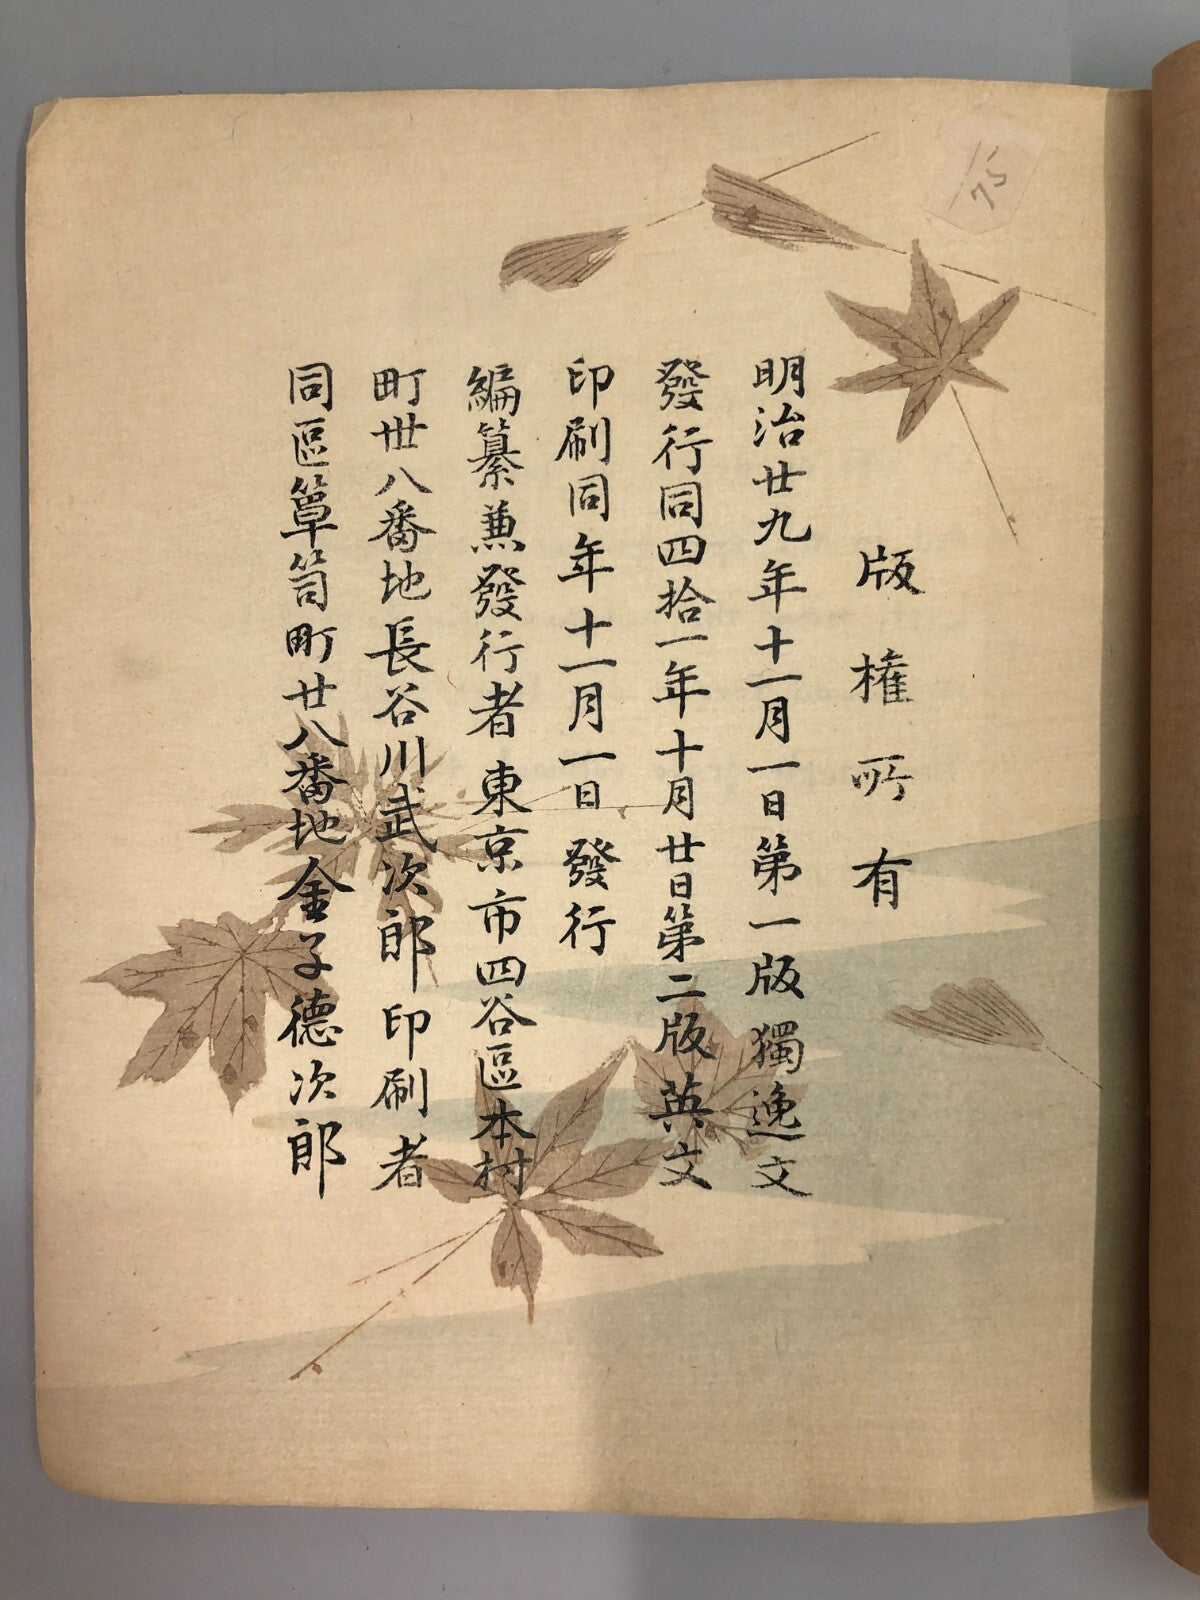 版權所有
明治廿九年十一月一日第一版獨逸文
發行同四拾一年十月廿日第二版英文
印刷同年十一月一日發行
編纂兼發行者東京市四谷區本村
町卅八番地長谷川武次郎印刷者
同區簞笥町廿八番地金子德次郎
/75